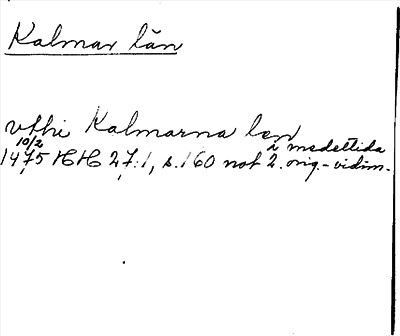 Kalmar län
vthi Kalmarna len
10/2 1475 HH 27:1, s. 160 not 2. i medeltida orig.-vidim.